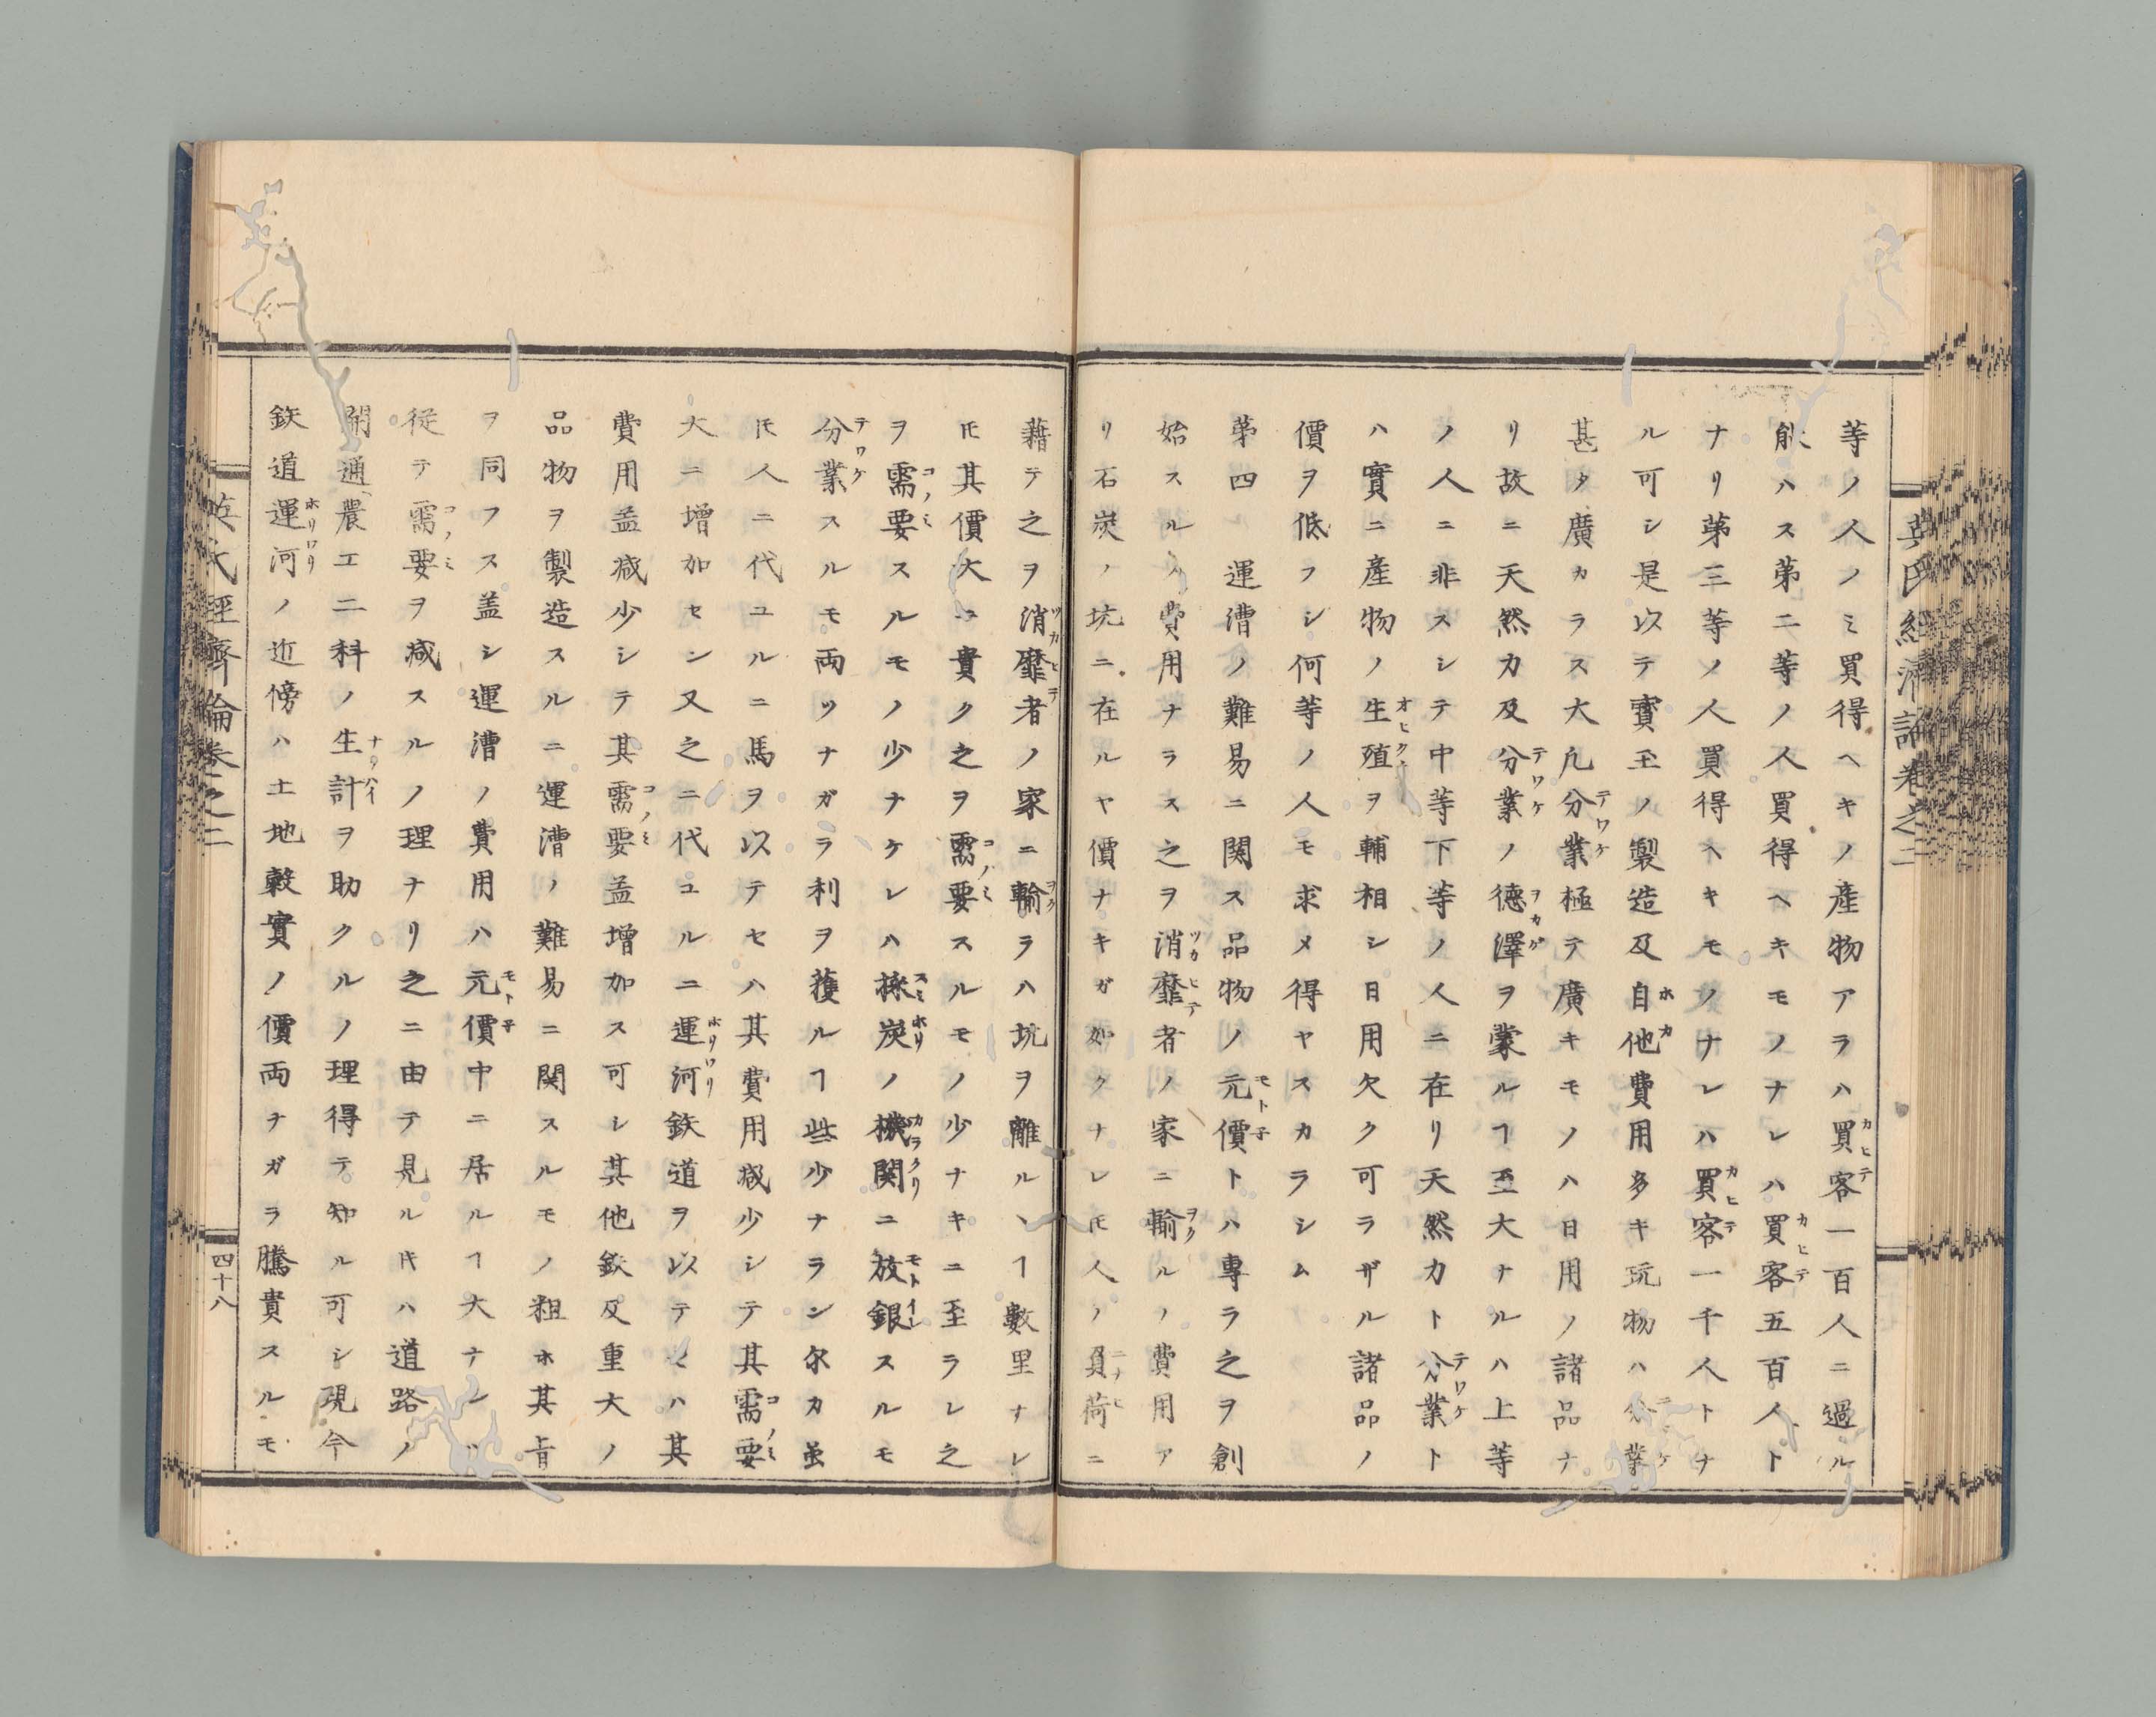 等ノ人ノミ買得ヘキノ産物アラハ買客一百人ニ過ル
能ハス第二等ノ人買得ヘキモノナレハ買客五百人ト
ナリ第三等ノ人買得ヘキモノナレハ買客一千人トナ
ル可シ是以テ寳玉ノ製造及自他費用多キ玩物ハ分業
甚タ廣カラス大凡分業極テ廣キモノハ日用ノ諸品ナ
リ故ニ天然力及分業ノ德澤ヲ蒙ルヿ至大ナルハ上等
ノ人ニ非スシテ中等下等ノ人ニ在リ天然力ト分業ト
ハ實ニ産物ノ生殖ヲ輔相シ日用欠ク可ラザル諸品ノ
價ヲ低フシ何等ノ人モ求メ得ヤスカラシム
第四 運漕ノ難易ニ関ス品物ノ元價トハ專ラ之ヲ創
始スルノ費用ナラス之ヲ消靡者ノ家ニ輸ルノ費用ア
リ石炭ノ坑ニ在ルヤ價ナキガ如クナレ𪜈人ノ負荷ニ
藉テ之ヲ消靡者ノ家ニ輸ラハ坑ヲ離ルヽヿ數里ナレ
𪜈其價大ニ貴ク之ヲ需要スルモノ少ナキニ至ラレ之
ヲ需要スルモノ少ナケレハ採炭ノ機関ニ放銀スルモ
分業スルモ両ツナガラ利ヲ獲ルヿ些少ナラン尔カ虽
𪜈人ニ代ユルニ馬ヲ以テセハ其費用减少シテ其需要
大ニ增加セン又之ニ代ユルニ運河鉄道ヲ以テセハ其
費用益减少シテ其需要益增加ス可シ其他鉄及重大ノ
品物ヲ製造スルニ運漕ノ難易ニ関スルモノ粗ホ其旨
ヲ同フス盖シ運漕ノ費用ハ元價中ニ居ルヿ大ナレハ
從テ需要ヲ减スルノ理ナリ之ニ由テ見ルキハ道路ノ
開通農工二科ノ生計ヲ助クルノ理得テ知ル可シ現今
鉄道運河ノ近傍ハ土地穀實ノ價両ナガラ騰貴スルモ
英氏經濟論卷之二
四十八